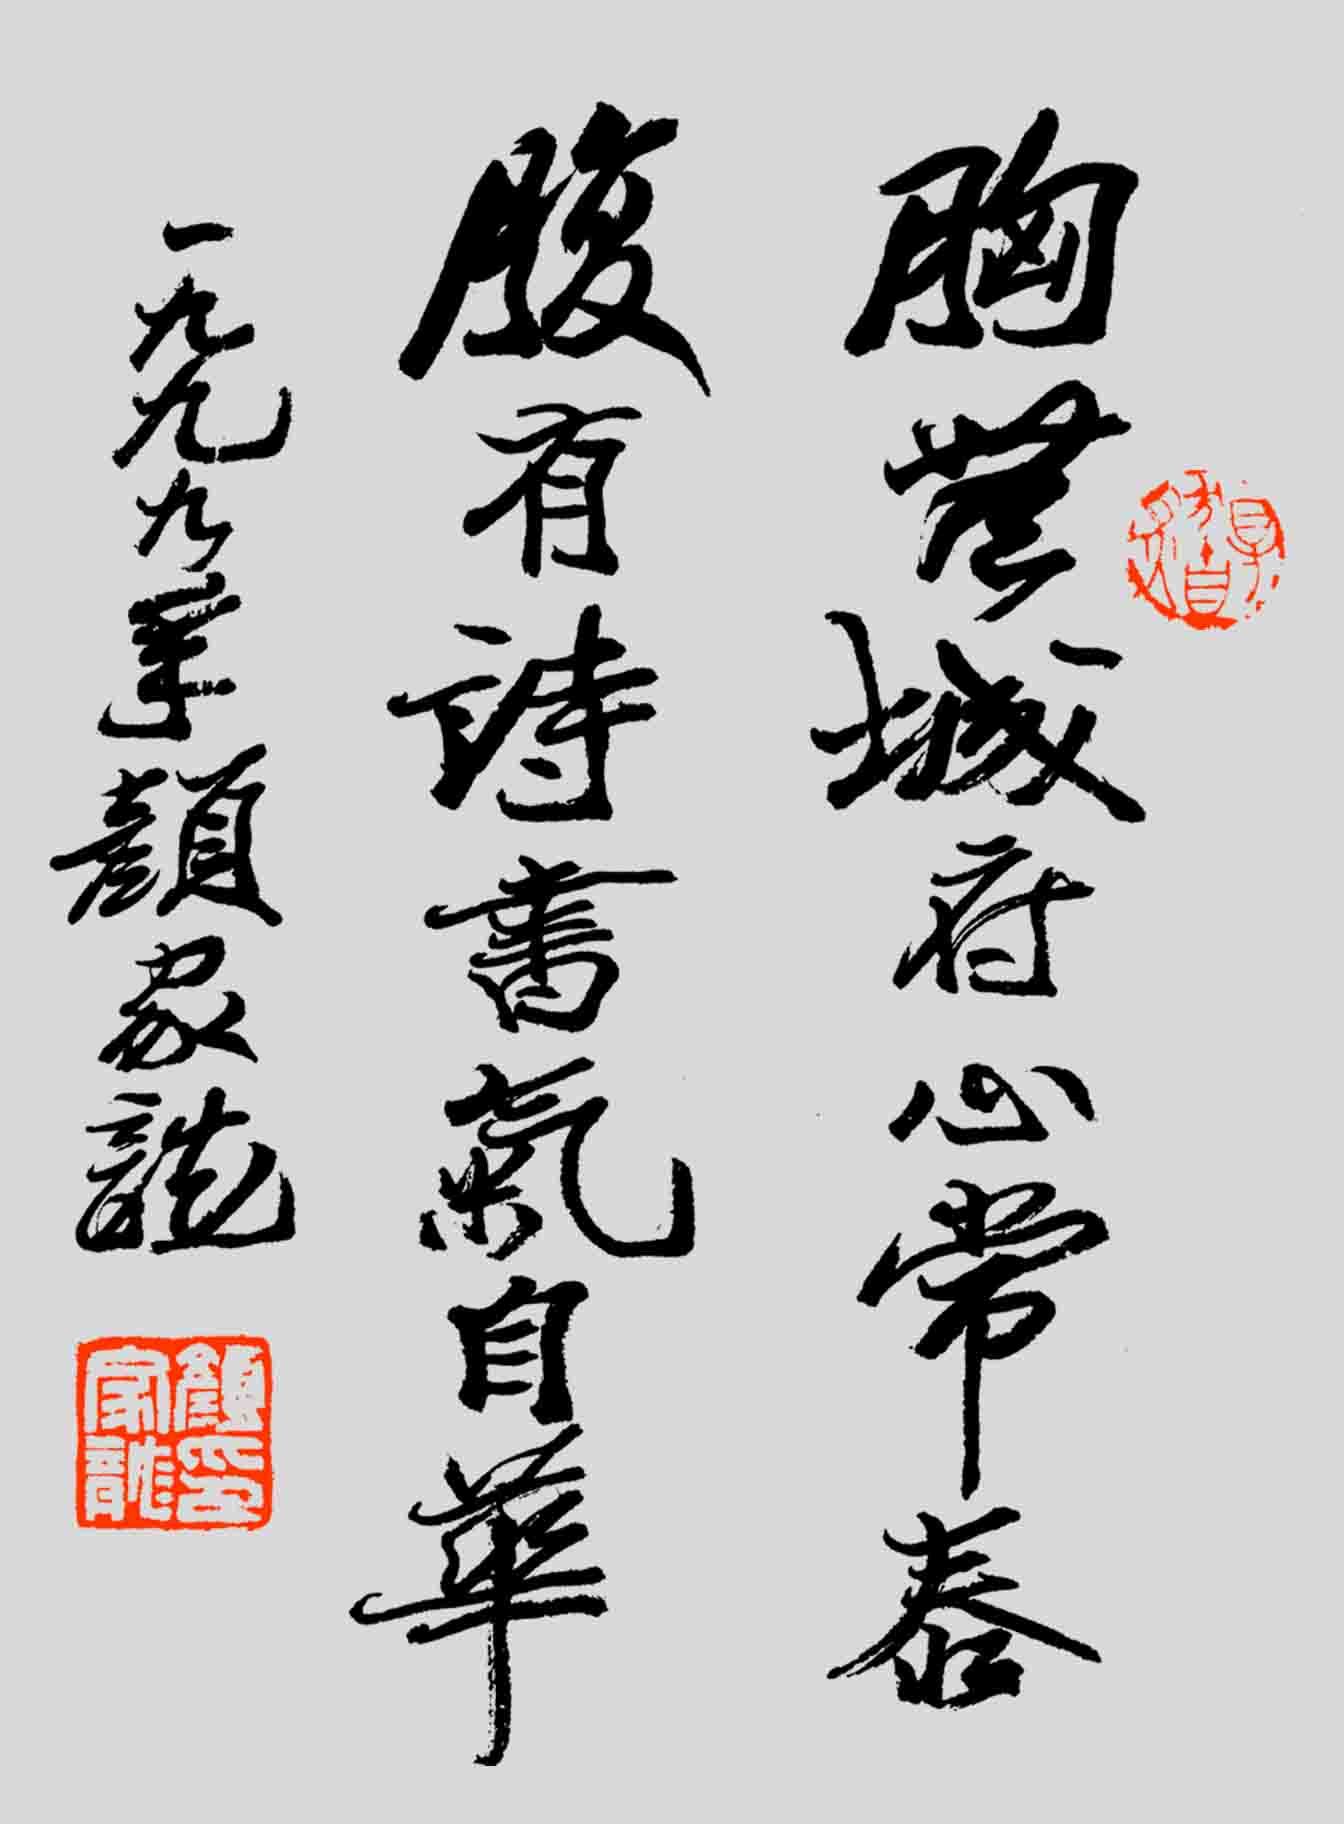 胸無城府心常泰
腹有詩書氣自華
一九九九年顏家龍
顏印家龍